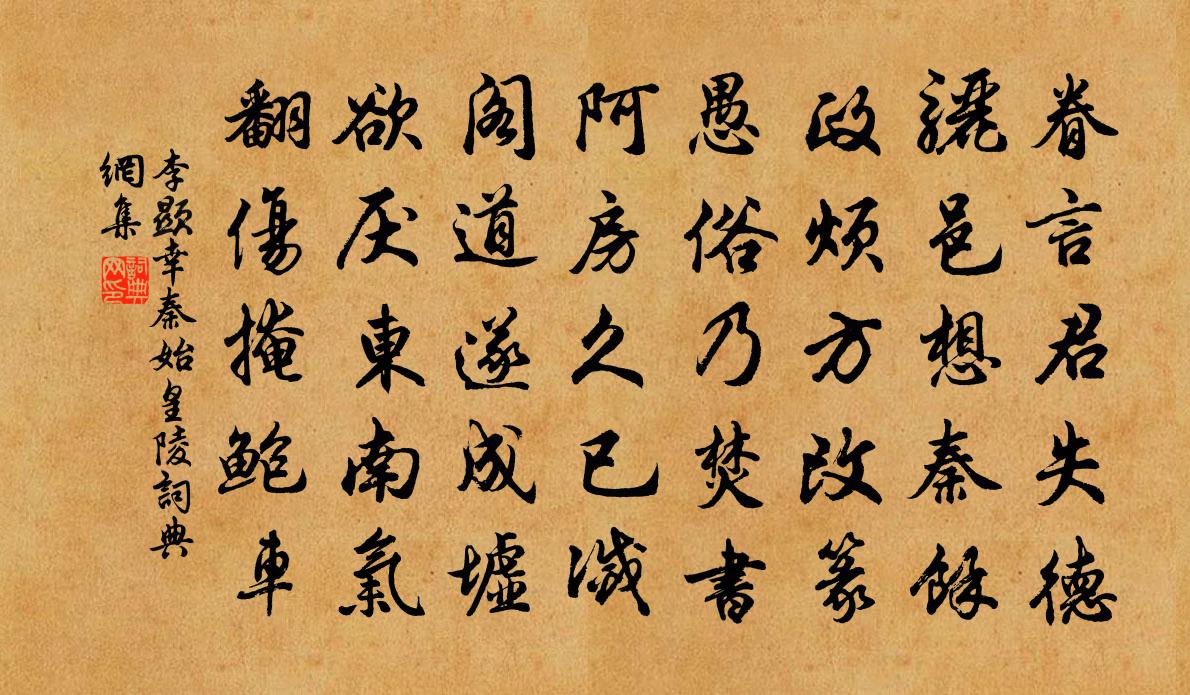 眷言君失德
驪邑想秦餘
政煩方改篆
愚俗乃焚書
阿房久已滅
閣道遂成墟
欲厌東南氣
翻傷掩鮑車
李顯幸秦始皇陵詞典
網集
詞典
网印